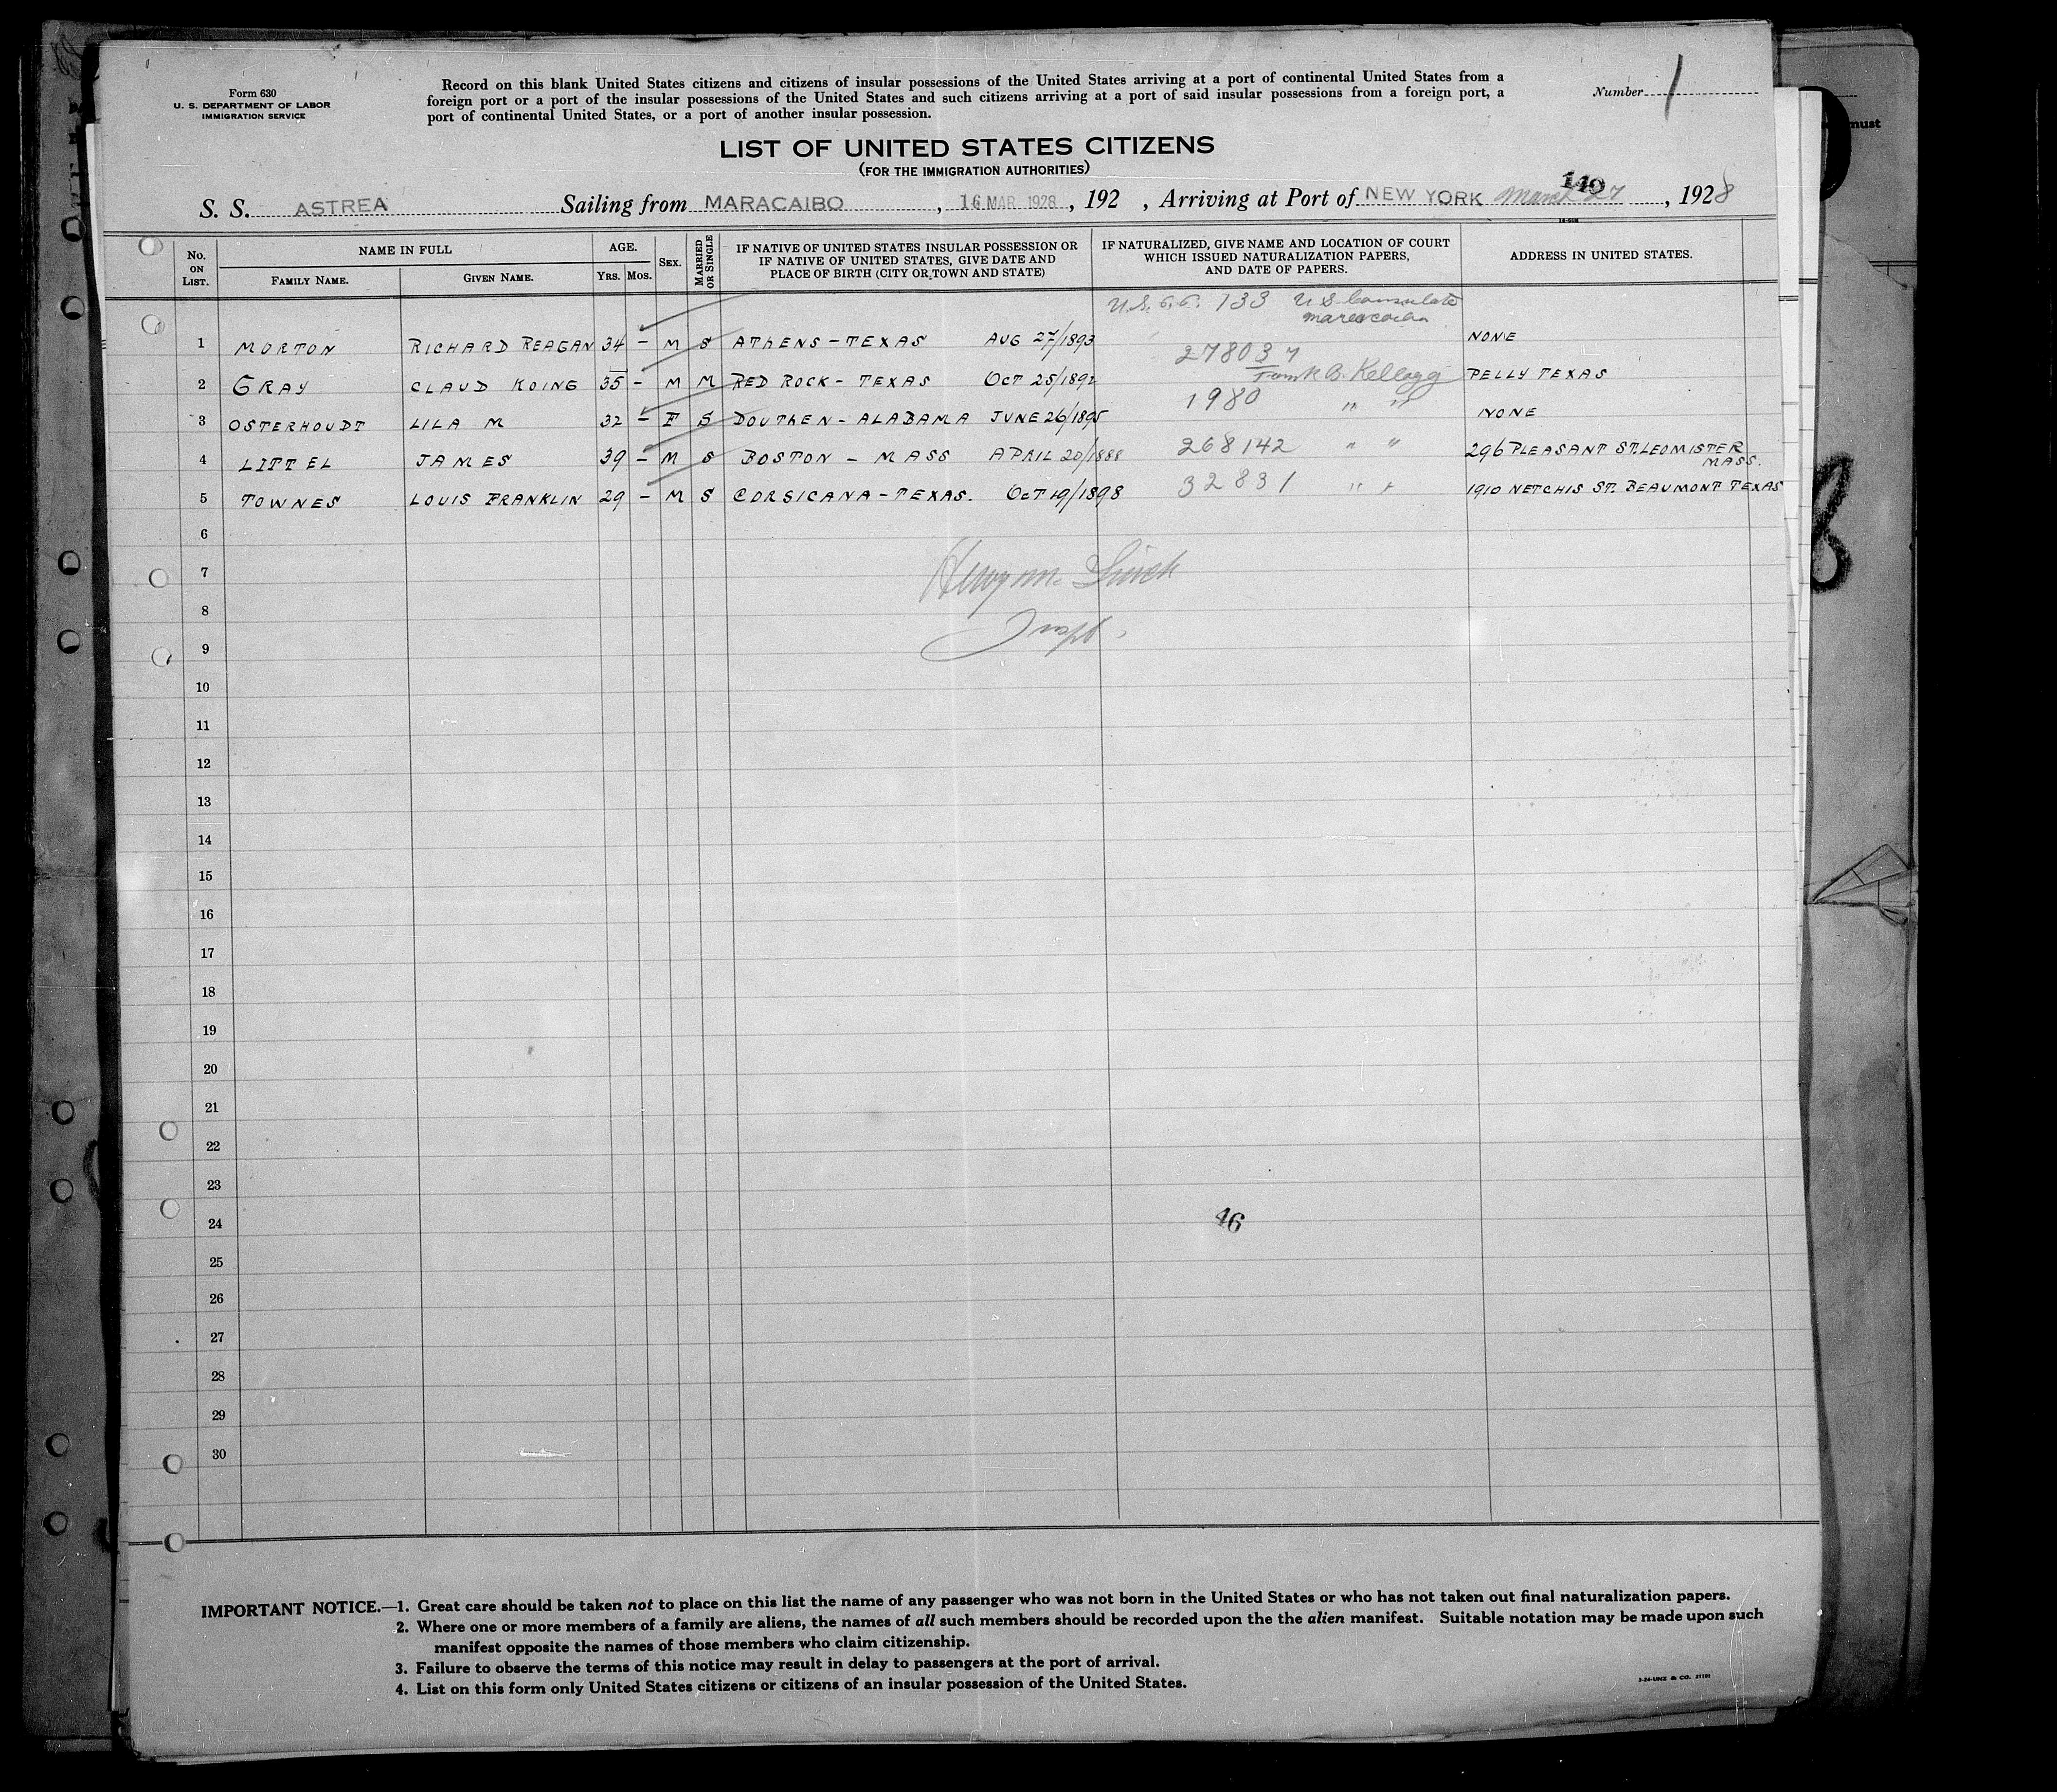 Form 630
U. S. DEPARTMENT OF LABOR
IMMIGRATION SERVICE
Record on this blank United States citizens and citizens of insular possessions of the United States arriving at a port of continental United States from a
foreign port or a port of the insular possessions of the United States and such citizens arriving at a port of said insular possessions from a foreign port, a
port of continental United States, or a port of another insular possession.
Number 1
must
LIST OF UNITED STATES CITIZENS
(FOR THE IMMIGRATION AUTHORITIES)
140
S. S. ASTREA Sailing from MARACAIBO, 16 MAR 1928, 192 , Arriving at Port of NEW YORK March 27, 1928
No. ON LIST.
NAME IN FULL
FAMILY NAME. GIVEN NAME.
AGE.
YRS. MOS.
SEX.
MARRIED OR SINGLE
IF NATIVE OF UNITED STATES INSULAR POSSESSION OR
IF NATIVE OF UNITED STATES, GIVE DATE AND
PLACE OF BIRTH (CITY OR TOWN AND STATE)
IF NATURALIZED, GIVE NAME AND LOCATION OF COURT
WHICH ISSUED NATURALIZATION PAPERS,
AND DATE OF PAPERS.
ADDRESS IN UNITED STATES.
133 U S Consulate
1 MORTON RICHARD REAGAN 34 - M S ATHENS - TEXAS AUG 27/1893 NONE
278037
2 GRAY CLAUD KOING 35 - M M RED ROCK - TEXAS OCT 25/1892 Frank B. Kellogg PELLY TEXAS
3 OSTERHOUDT LILA M 32 - F S DOUTHEN - ALABAMA JUNE 26/1895 1980 " " NONE
4 LITTEL JAMES 39 - M S BOSTON - MASS APRIL 20/1888 268142 " " 296 PLEASANT ST. LEOMISTER
MASS.
5 TOWNES LOUIS FRANKLIN 29 - M S CORSICANA - TEXAS. OCT 19/1898 32831 " " 1910 NETCHIS ST. BEAUMONT TEXAS
6
7
8
9
10
11
12
13
14
15
16
17
18
19
20
21
22
23
24
46
25
26
27
28
29
30
IMPORTANT NOTICE.—1. Great care should be taken not to place on this list the name of any passenger who was not born in the United States or who has not taken out final naturalization papers.
2. Where one or more members of a family are aliens, the names of all such members should be recorded upon the the alien manifest. Suitable notation may be made upon such
manifest opposite the names of those members who claim citizenship.
3. Failure to observe the terms of this notice may result in delay to passengers at the port of arrival.
4. List on this form only United States citizens or citizens of an insular possession of the United States.